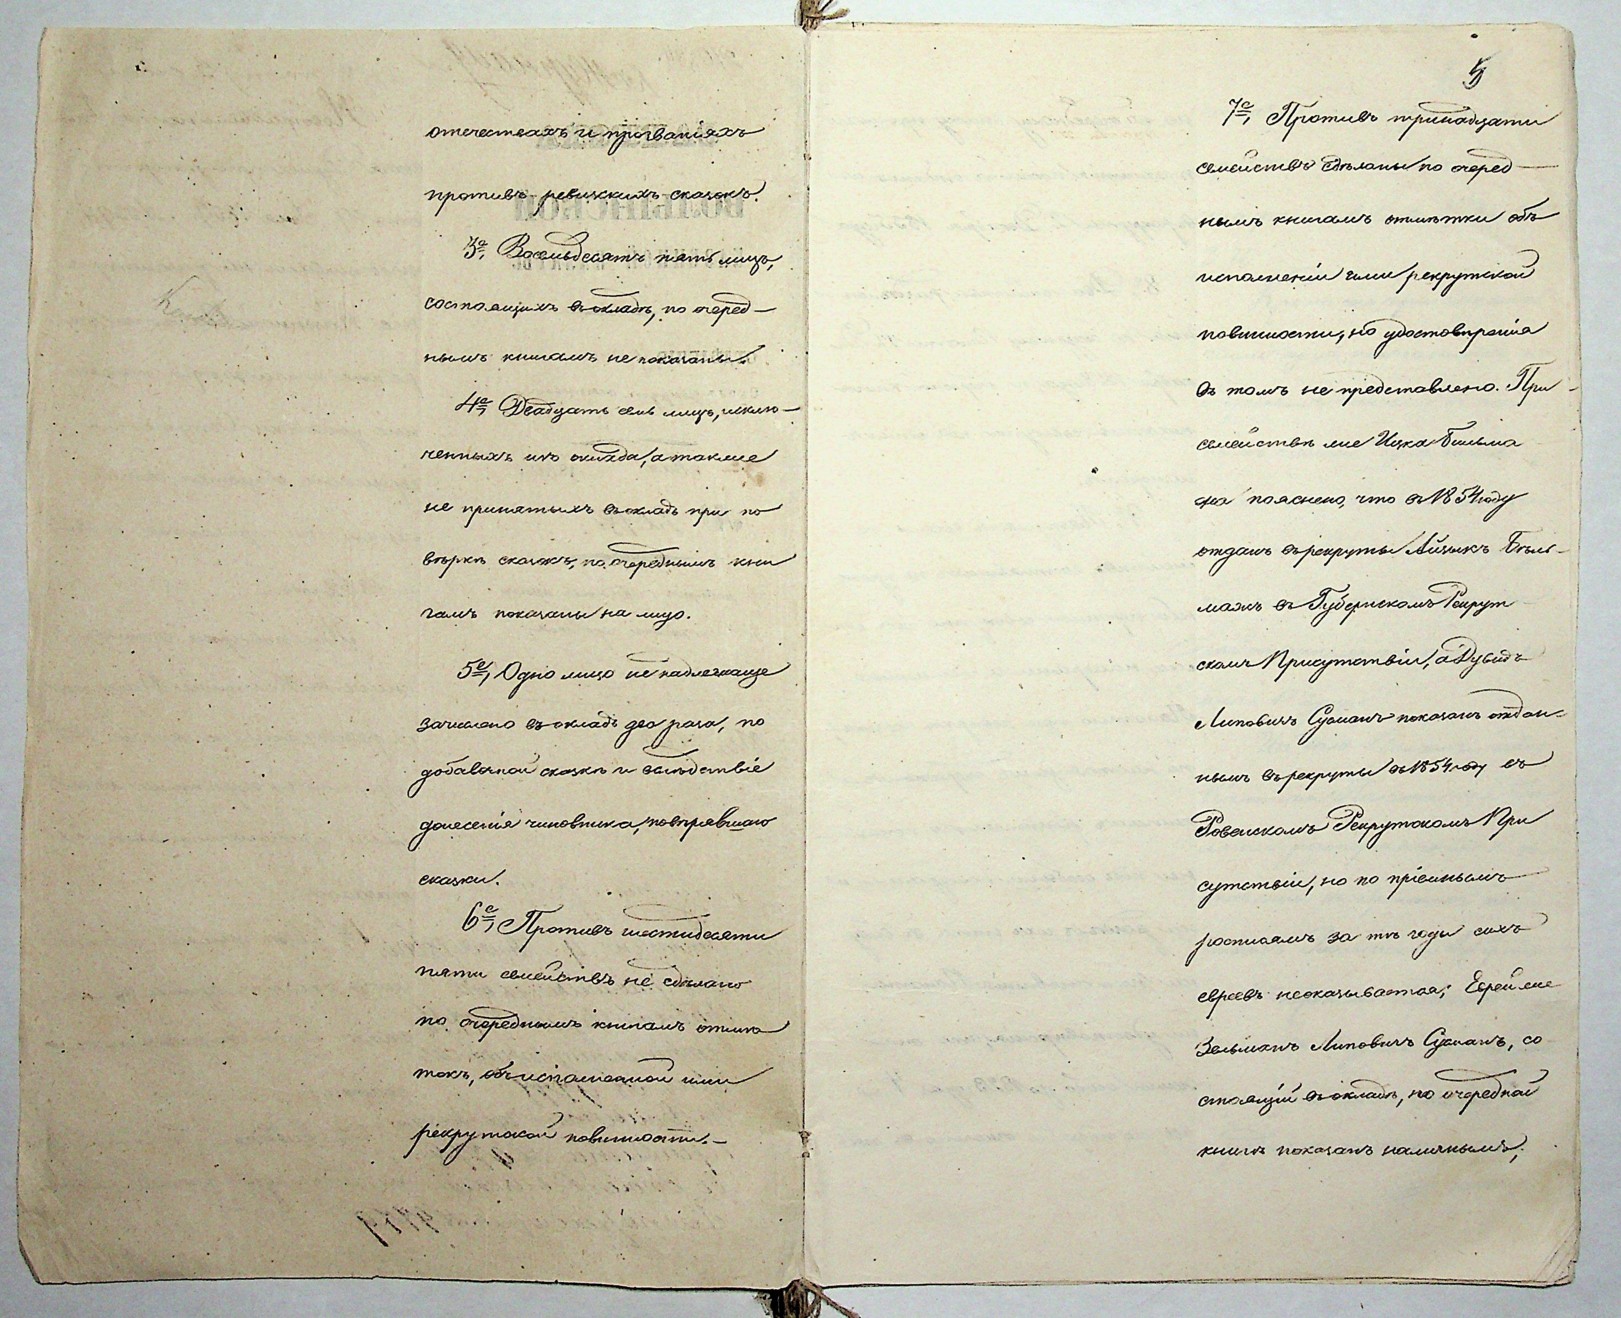 отечествахъ и прозваніяхъ
противъ ревизскихъ сказокъ.
3е, Восемьдесятъ пять лицъ,
состоящихъ въ окладѣ, по очеред-
нымъ книгамъ не показаны.
4е, Двадцать семь лицъ, исклю-
ченныхъ изъ оклада, а также
не принятыхъ въ окладъ при по
вѣркѣ сказокъ, по очереднымъ кни
гамъ показаны на лицо.
5е, Одно лицо не надлежаще
зачислено въ окладъ два раза, по
добавочной сказкѣ и вслѣдствіе
донесенія чиновника, повѣрявшаго
сказки.
6е, Противъ шестидесяти
пяти семействъ не сдѣлано
по очереднымъ книгамъ отмѣ
токъ, объ исполненной ими
рекрутской повинности.-
5
7е, Противъ тринадцати
семействъ сдѣланы по очеред-
нымъ книгамъ отмѣтки объ
исполненіи ими рекрутской
повинности, но удостовѣренія
въ томъ не представлено. При
семействѣ же Ицка Бильма
на пояснено, что въ 1854 году
отданъ въ рекруты Айзыкъ Бель-
манъ въ Губернскомъ Рекрут
скомъ Присутствіи, а Дувидъ
Липовичъ Сусманъ показанъ отдан-
нымъ въ рекруты въ 1854 году въ
Ровенскомъ Рекрутскомъ При
сутствіи, но по пріемнымъ
росписямъ за тѣ годы сихъ
евреевъ неоказывается; Еврей же
Зельманъ Липовичъ Сусманъ, со
стоящій въ окладѣ, по очередной
книгѣ показанъ наличнымъ;